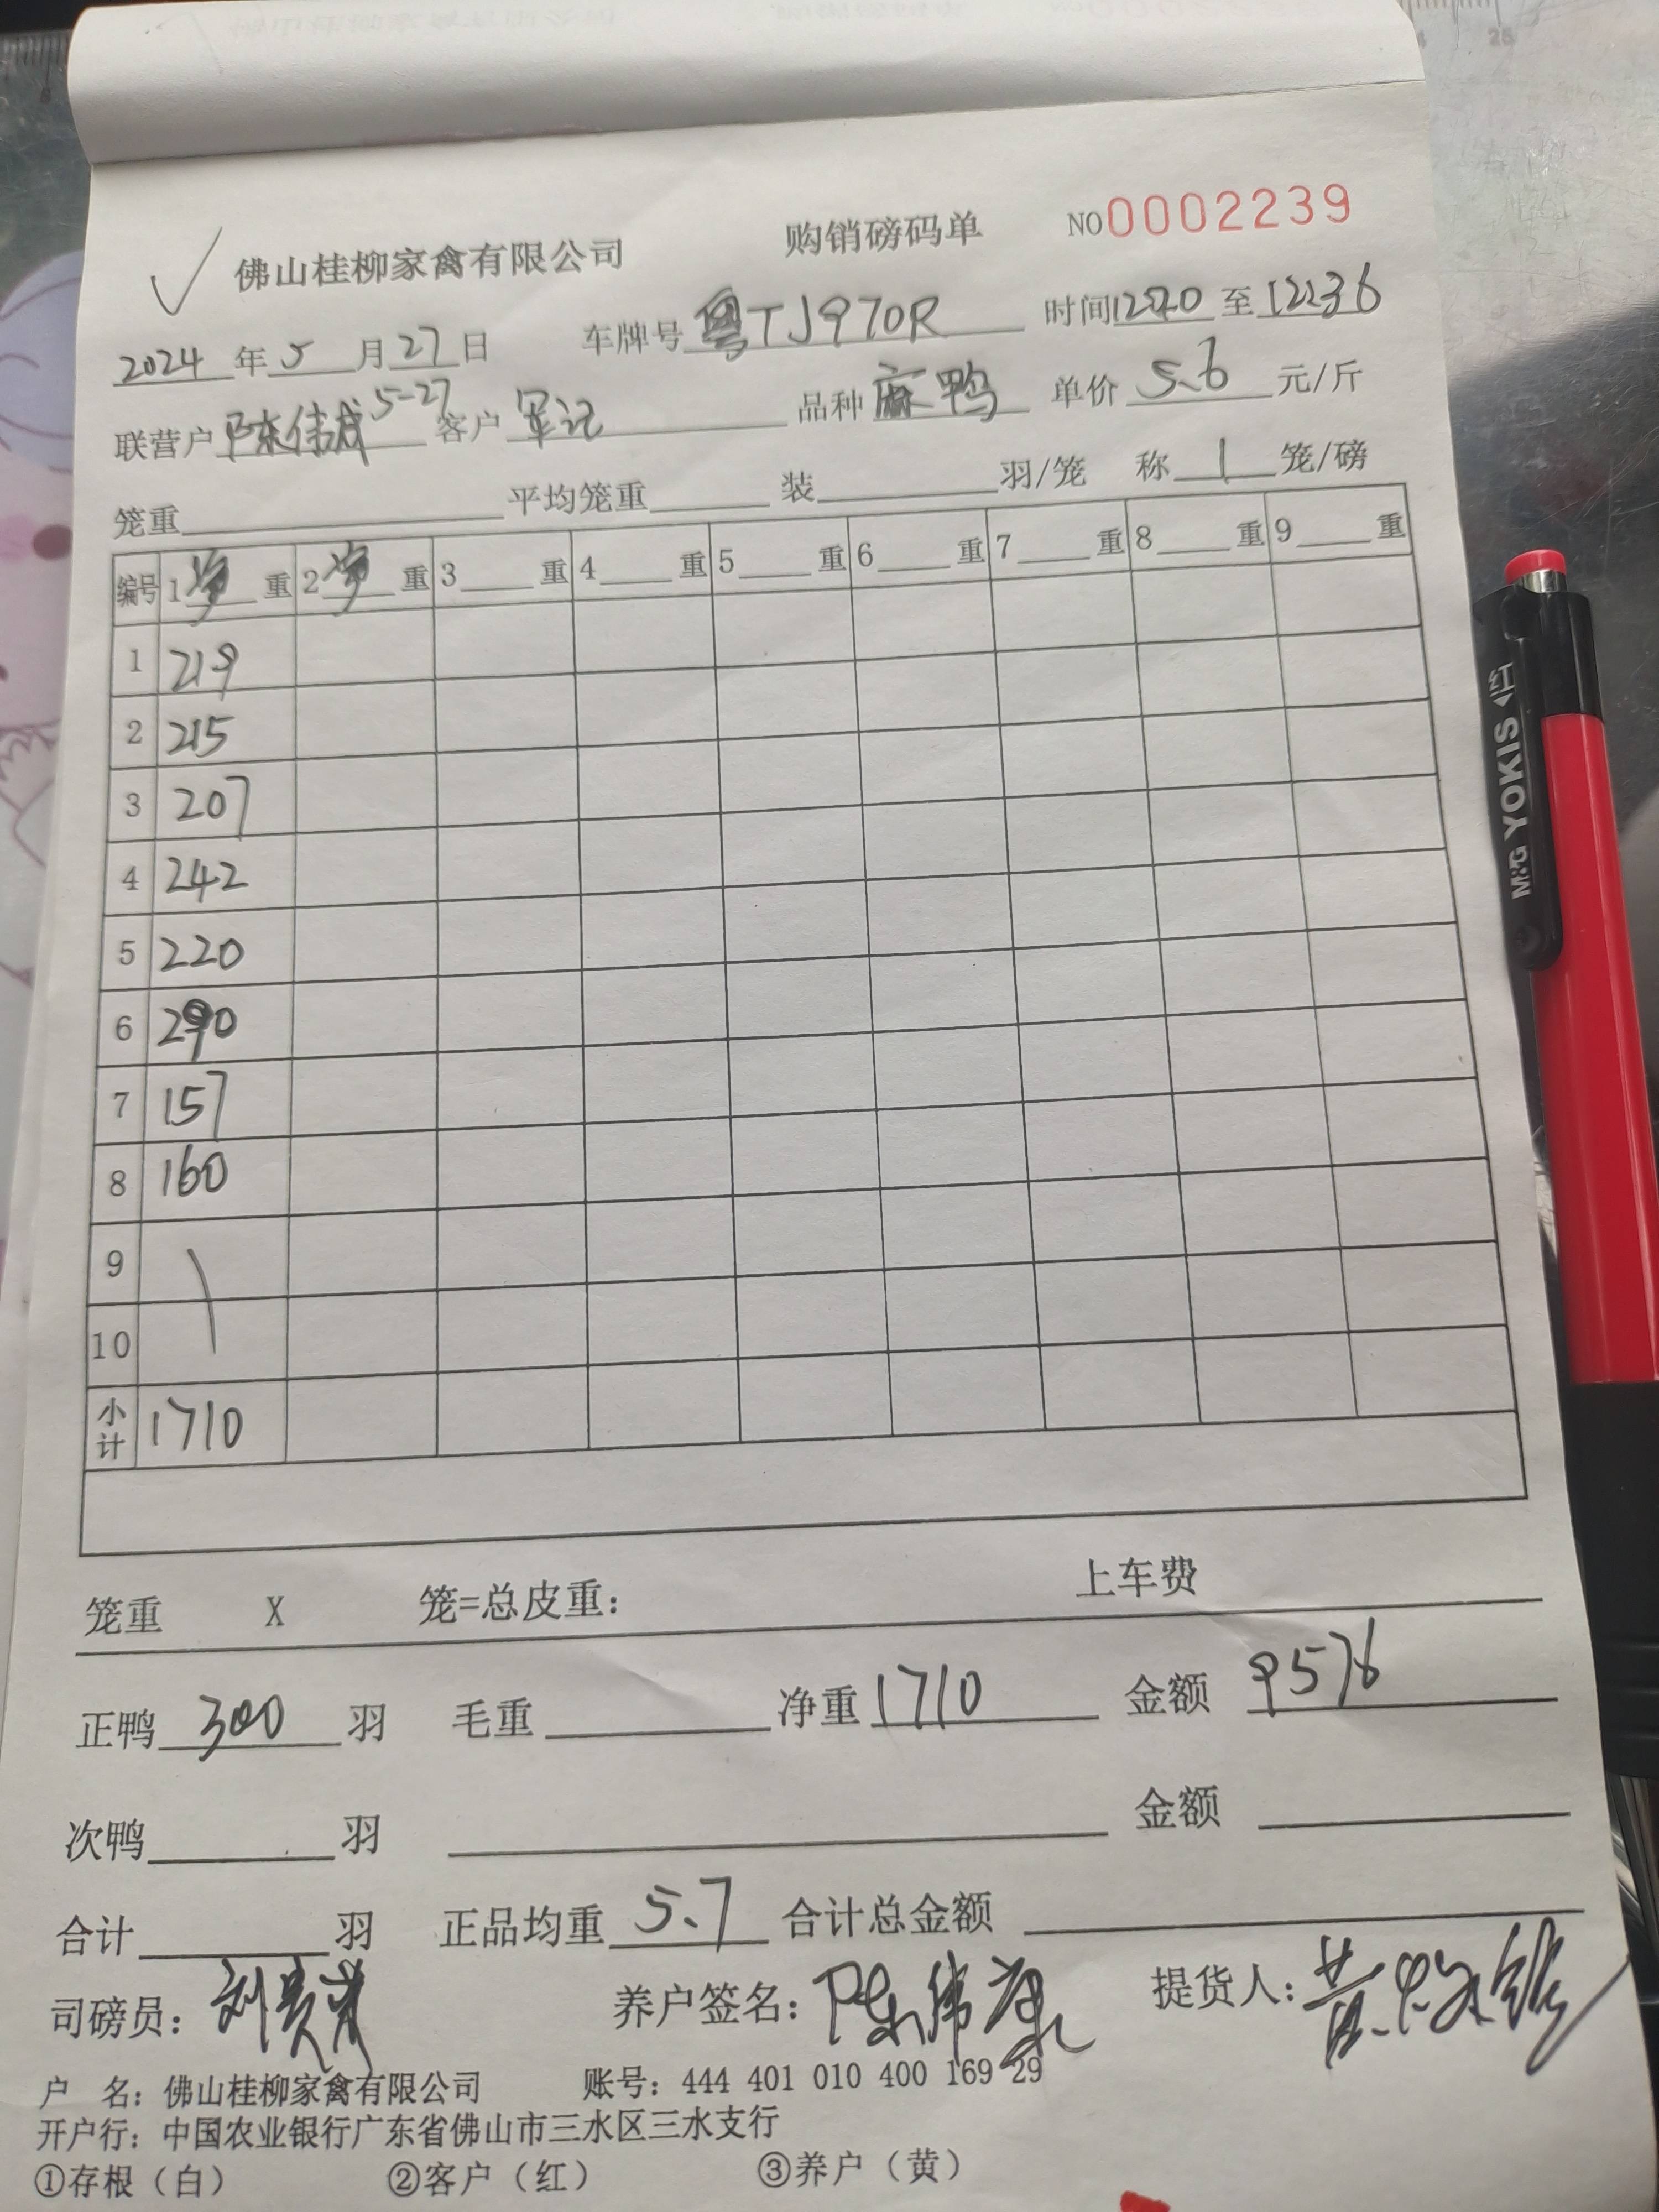 佛山桂柳家禽有限公司 购销磅码单 NO0002239
2024年5月27日 车牌号粤TJ970R 时间1220至12236
联营户陈伟成5-27 客户军记 品种麻鸭 单价5.6元/斤
笼重 平均笼重 装 羽/笼 称1笼/磅
编号 1净重 2净重 3 重 4 重 5 重 6 重 7 重 8 重 9 重
1 219
2 215
3 207
4 242
5 220
6 290
7 157
8 160
9
10
小计 1710
笼重 X 笼=总皮重： 上车费
正鸭300羽 毛重 净重1710 金额9576
次鸭 羽 金额
合计 羽 正品均重5.7 合计总金额
司磅员： 养户签名：陈伟 提货人：黄
户 名：佛山桂柳家禽有限公司 账号：444 401 010 400 169 29
开户行：中国农业银行广东省佛山市三水区三水支行
①存根（白） ②客户（红） ③养户（黄）
M&G YOKIS